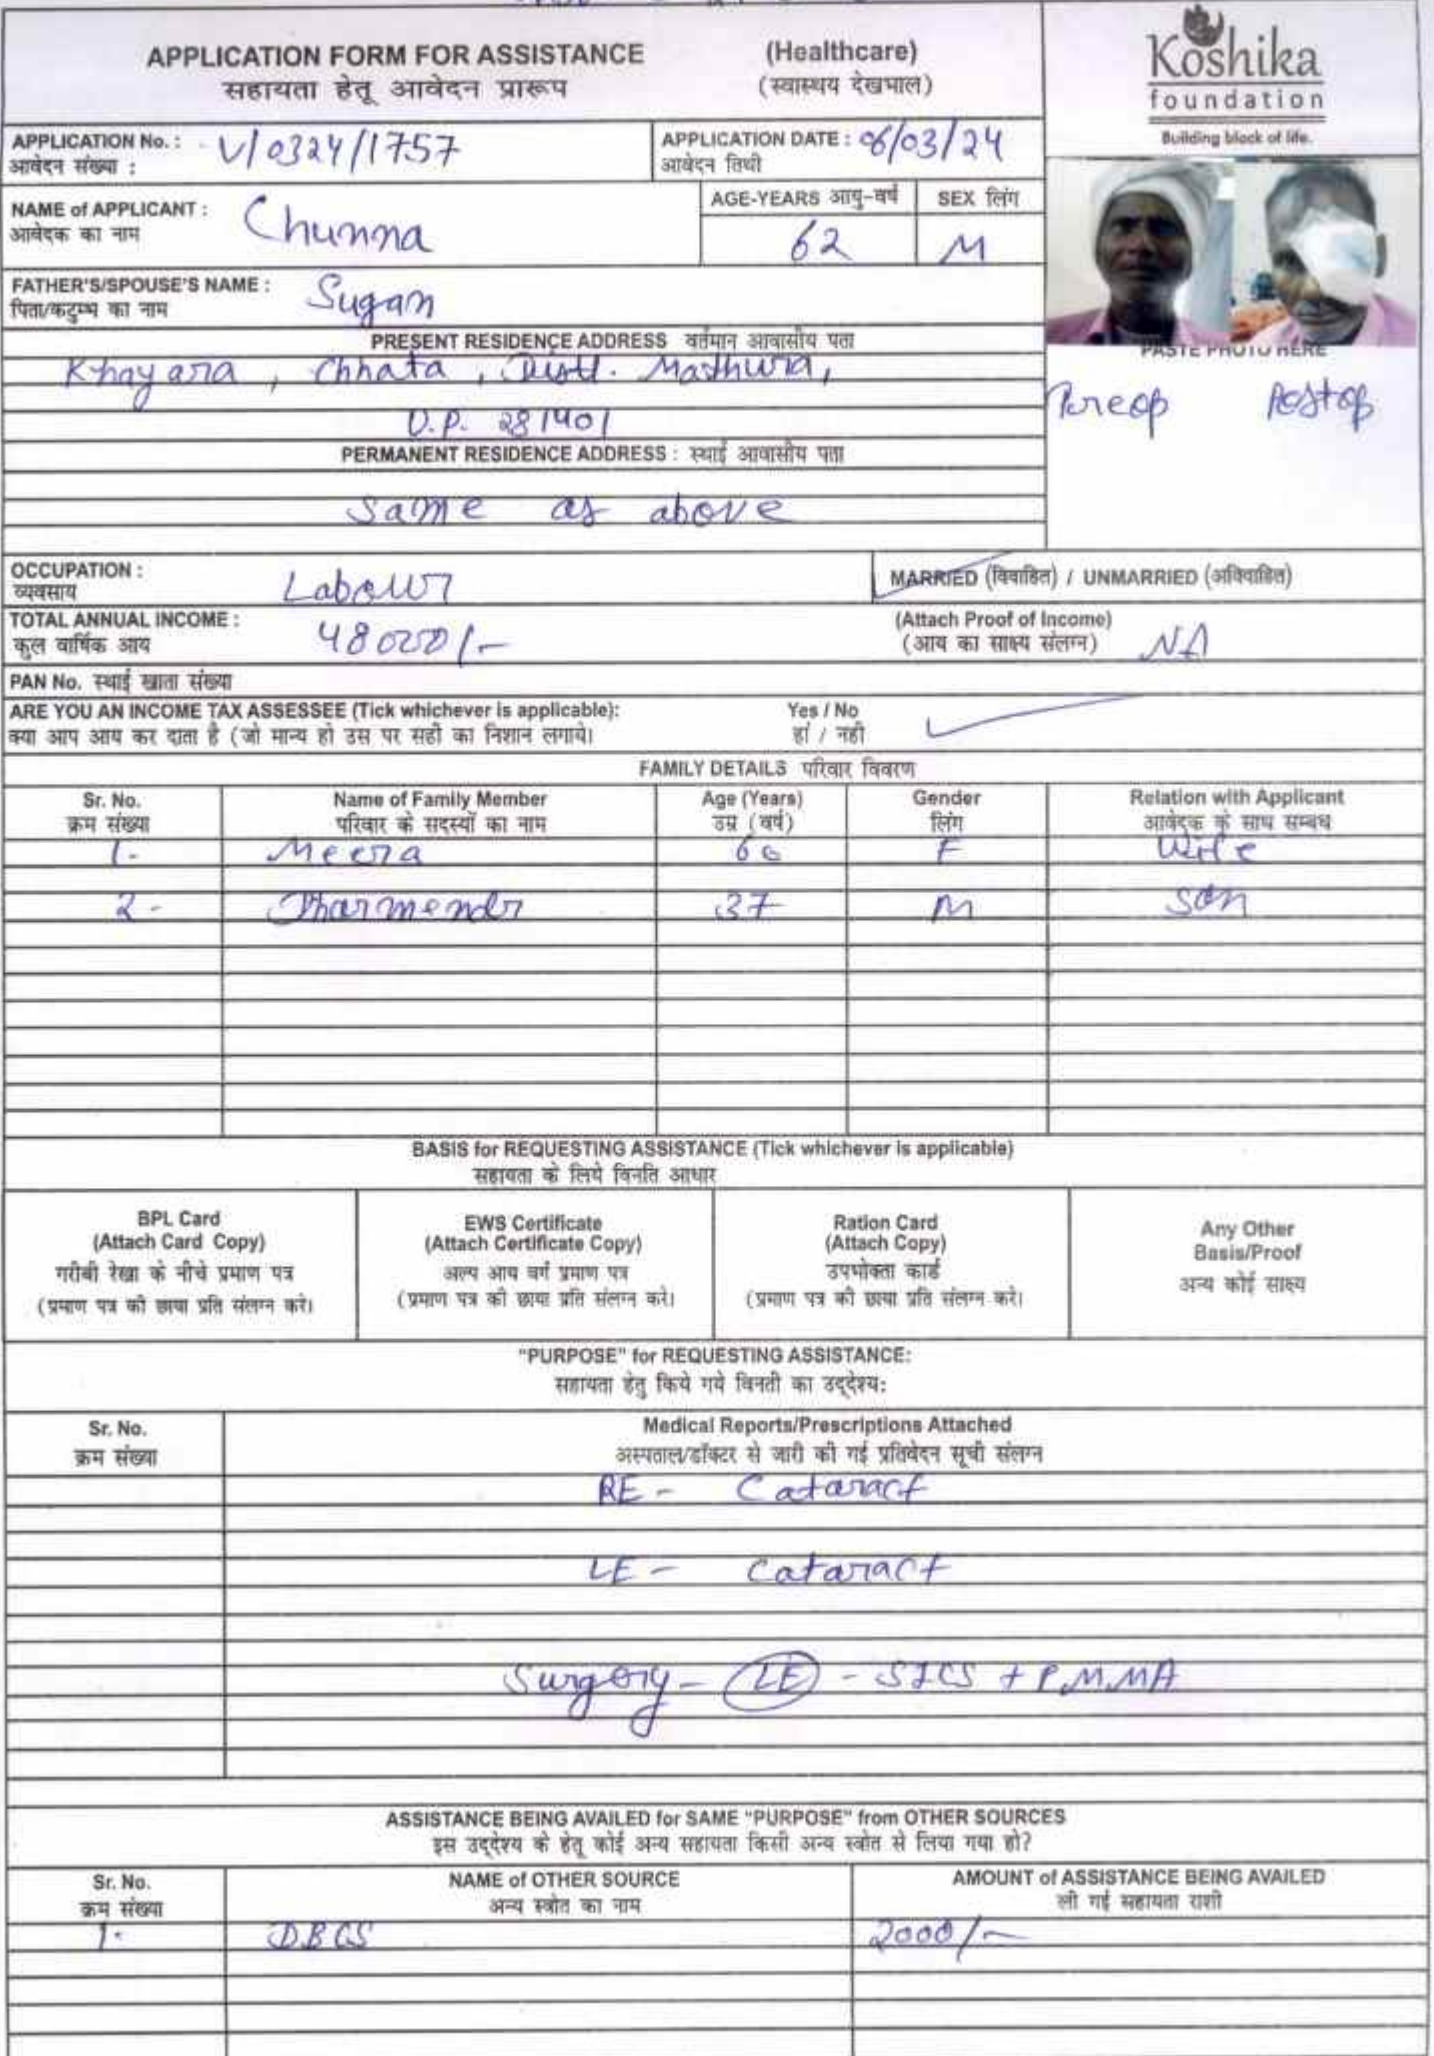 APPLICATION FORM FOR ASSISTANCE (Healthcare)
सहायता हेतू आवेदन प्रारूप (स्वास्थय देखभाल)
Koshika
foundation
Building block of life.
APPLICATION No. : V/0324/1757
आवेदन संख्या :
APPLICATION DATE : 06/03/24
आवेदन तिथी
NAME of APPLICANT : Chunna
आवेदक का नाम
AGE-YEARS आयु-वर्ष SEX लिंग
62 M
FATHER'S/SPOUSE'S NAME : Sugan
पिता/कटुम्भ का नाम
PASTE PHOTO HERE
Preop Postop
PRESENT RESIDENCE ADDRESS वर्तमान आवासीय पता
Khayara, Chhata, Distt. Mathura,
U.P. 281401
PERMANENT RESIDENCE ADDRESS : स्थाई आवासीय पता
Same as above
OCCUPATION : Labour
व्यवसाय
MARRIED (विवाहित) / UNMARRIED (अविवाहित)
TOTAL ANNUAL INCOME : 48000/-
कुल वार्षिक आय
(Attach Proof of Income)
(आय का साक्ष्य संलग्न) NA
PAN No. स्थाई खाता संख्या
ARE YOU AN INCOME TAX ASSESSEE (Tick whichever is applicable): Yes / No
क्या आप आय कर दाता है (जो मान्य हो उस पर सही का निशान लगाये। हां / नही
FAMILY DETAILS परिवार विवरण
Sr. No. Name of Family Member Age (Years) Gender Relation with Applicant
क्रम संख्या परिवार के सदस्यों का नाम उम्र (वर्ष) लिंग आवेदक के साथ सम्बध
1- Meera 60 F Wife
2- Dharmendr 37 M Son
BASIS for REQUESTING ASSISTANCE (Tick whichever is applicable)
सहायता के लिये विनति आधार
BPL Card
(Attach Card Copy)
गरीबी रेखा के नीचे प्रमाण पत्र
(प्रमाण पत्र की छाया प्रति संलग्न करे।
EWS Certificate
(Attach Certificate Copy)
अल्प आय वर्ग प्रमाण पत्र
(प्रमाण पत्र की छाया प्रति संलग्न करे।
Ration Card
(Attach Copy)
उपभोक्ता कार्ड
(प्रमाण पत्र की छाया प्रति संलग्न करे।
Any Other
Basis/Proof
अन्य कोई साक्ष्य
"PURPOSE" for REQUESTING ASSISTANCE:
सहायता हेतु किये गये विनती का उद्देश्य:
Sr. No. Medical Reports/Prescriptions Attached
क्रम संख्या अस्पताल/डॉक्टर से जारी की गई प्रतिवेदन सूची संलग्न
RE - Cataract
LE - Cataract
Surgery - LE - SICS + P.M.MA
ASSISTANCE BEING AVAILED for SAME "PURPOSE" from OTHER SOURCES
इस उद्देश्य के हेतू कोई अन्य सहायता किसी अन्य स्त्रोत से लिया गया हो?
Sr. No. NAME of OTHER SOURCE AMOUNT of ASSISTANCE BEING AVAILED
क्रम संख्या अन्य स्त्रोत का नाम ली गई सहायता राशी
1- DBCS 2000/-